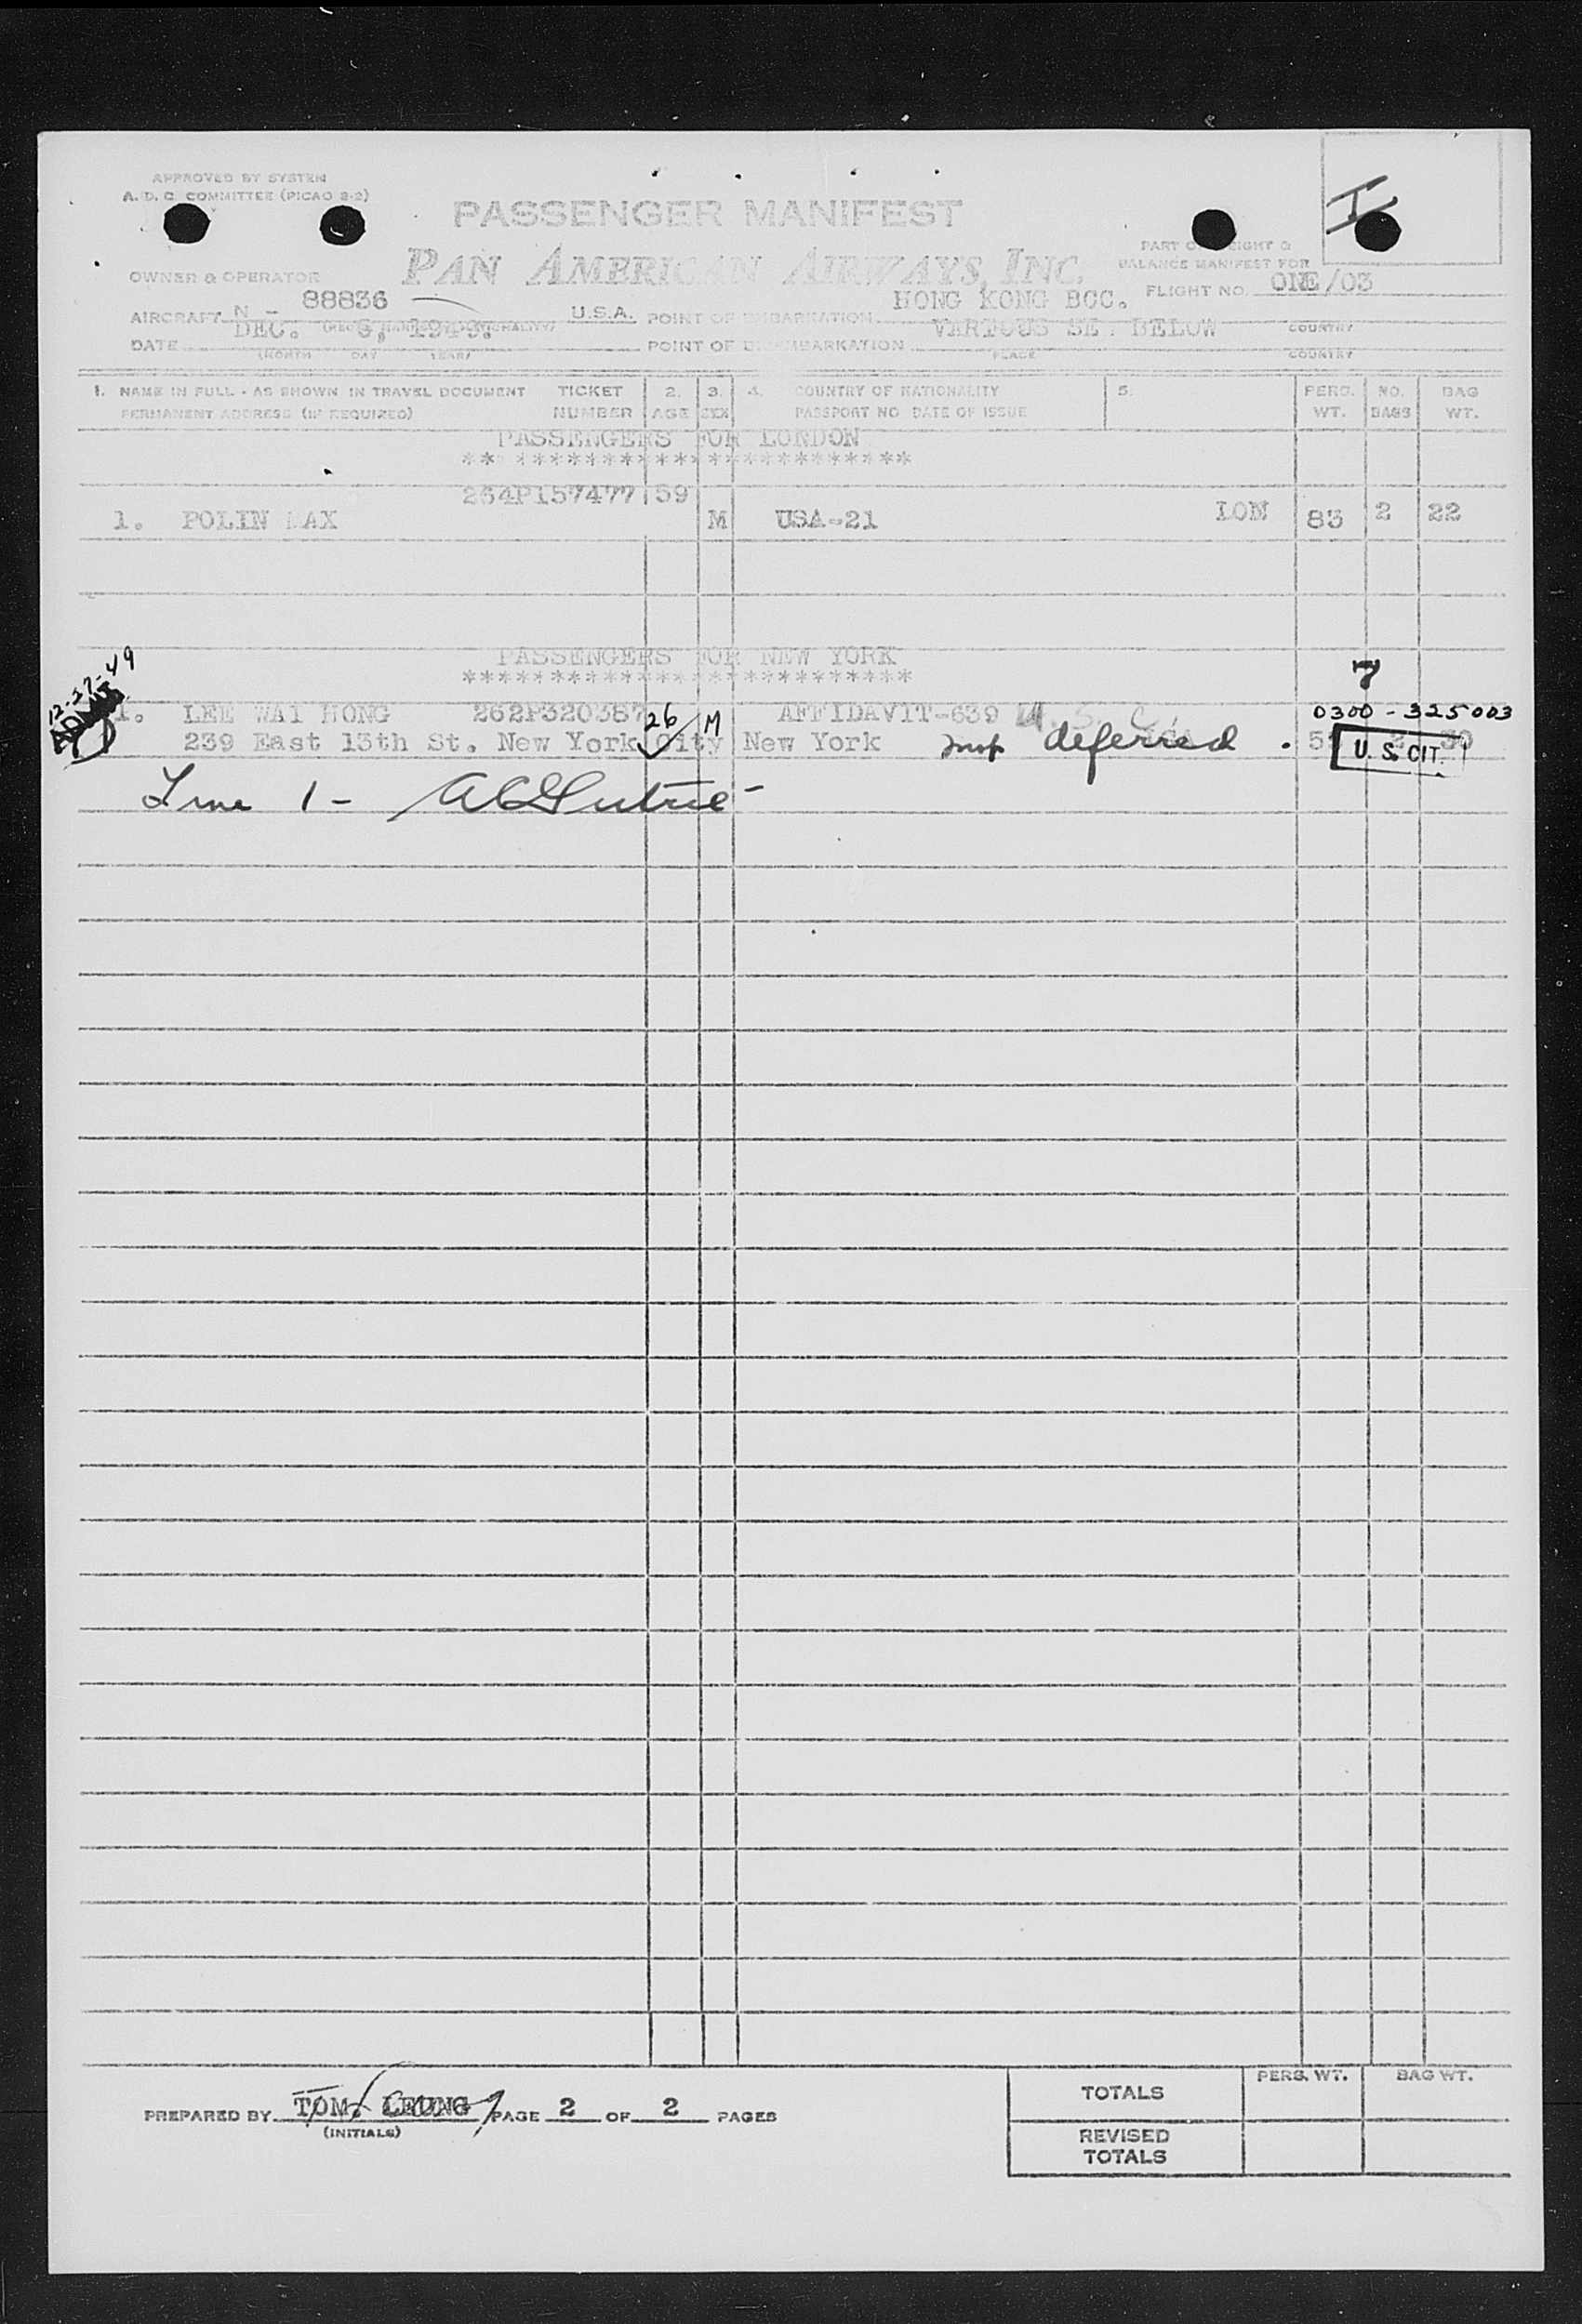 APPROVED BY SYSTEM
A. D. C. COMMITTEE (PICAO 2-2)
PASSENGER MANIFEST
PAN AMERICAN AIRWAYS, INC.
PART OF WEIGHT &
BALANCE MANIFEST FOR
OWNER & OPERATOR
FLIGHT NO. ONE/03
AIRCRAFT N - 88836 U.S.A. POINT OF EMBARKATION HONG KONG BCC. COUNTRY
DATE DEC. 1949. POINT OF EMBARKATION VARIOUS SEE BELOW
(MONTH DAY YEAR) PLACE COUNTRY
1. NAME IN FULL - AS SHOWN IN TRAVEL DOCUMENT TICKET 2. 3. 4. COUNTRY OF NATIONALITY 5. PERS. NO. BAG
PERMANENT ADDRESS (IF REQUIRED) NUMBER AGE SEX PASSPORT NO DATE OF ISSUE WT. BAGS WT.
PASSENGERS FOR LONDON
** ***********************
264P157477 59
1. POLIN MAX M USA-21 LON 83 2 22
PASSENGERS FOR NEW YORK
**************************
7
12-27-49
ADMIT
1. LEE WAI HONG 262P320387 26 M AFFIDAVIT-639 U. S. C. 0300-325003
239 East 13th St. New York City New York deferred. U. S. CIT. 30
Line 1 -
PREPARED BY TOM. LEUNG PAGE 2 OF 2 PAGES
(INITIALS)
PERS. WT. BAG WT.
TOTALS
REVISED
TOTALS